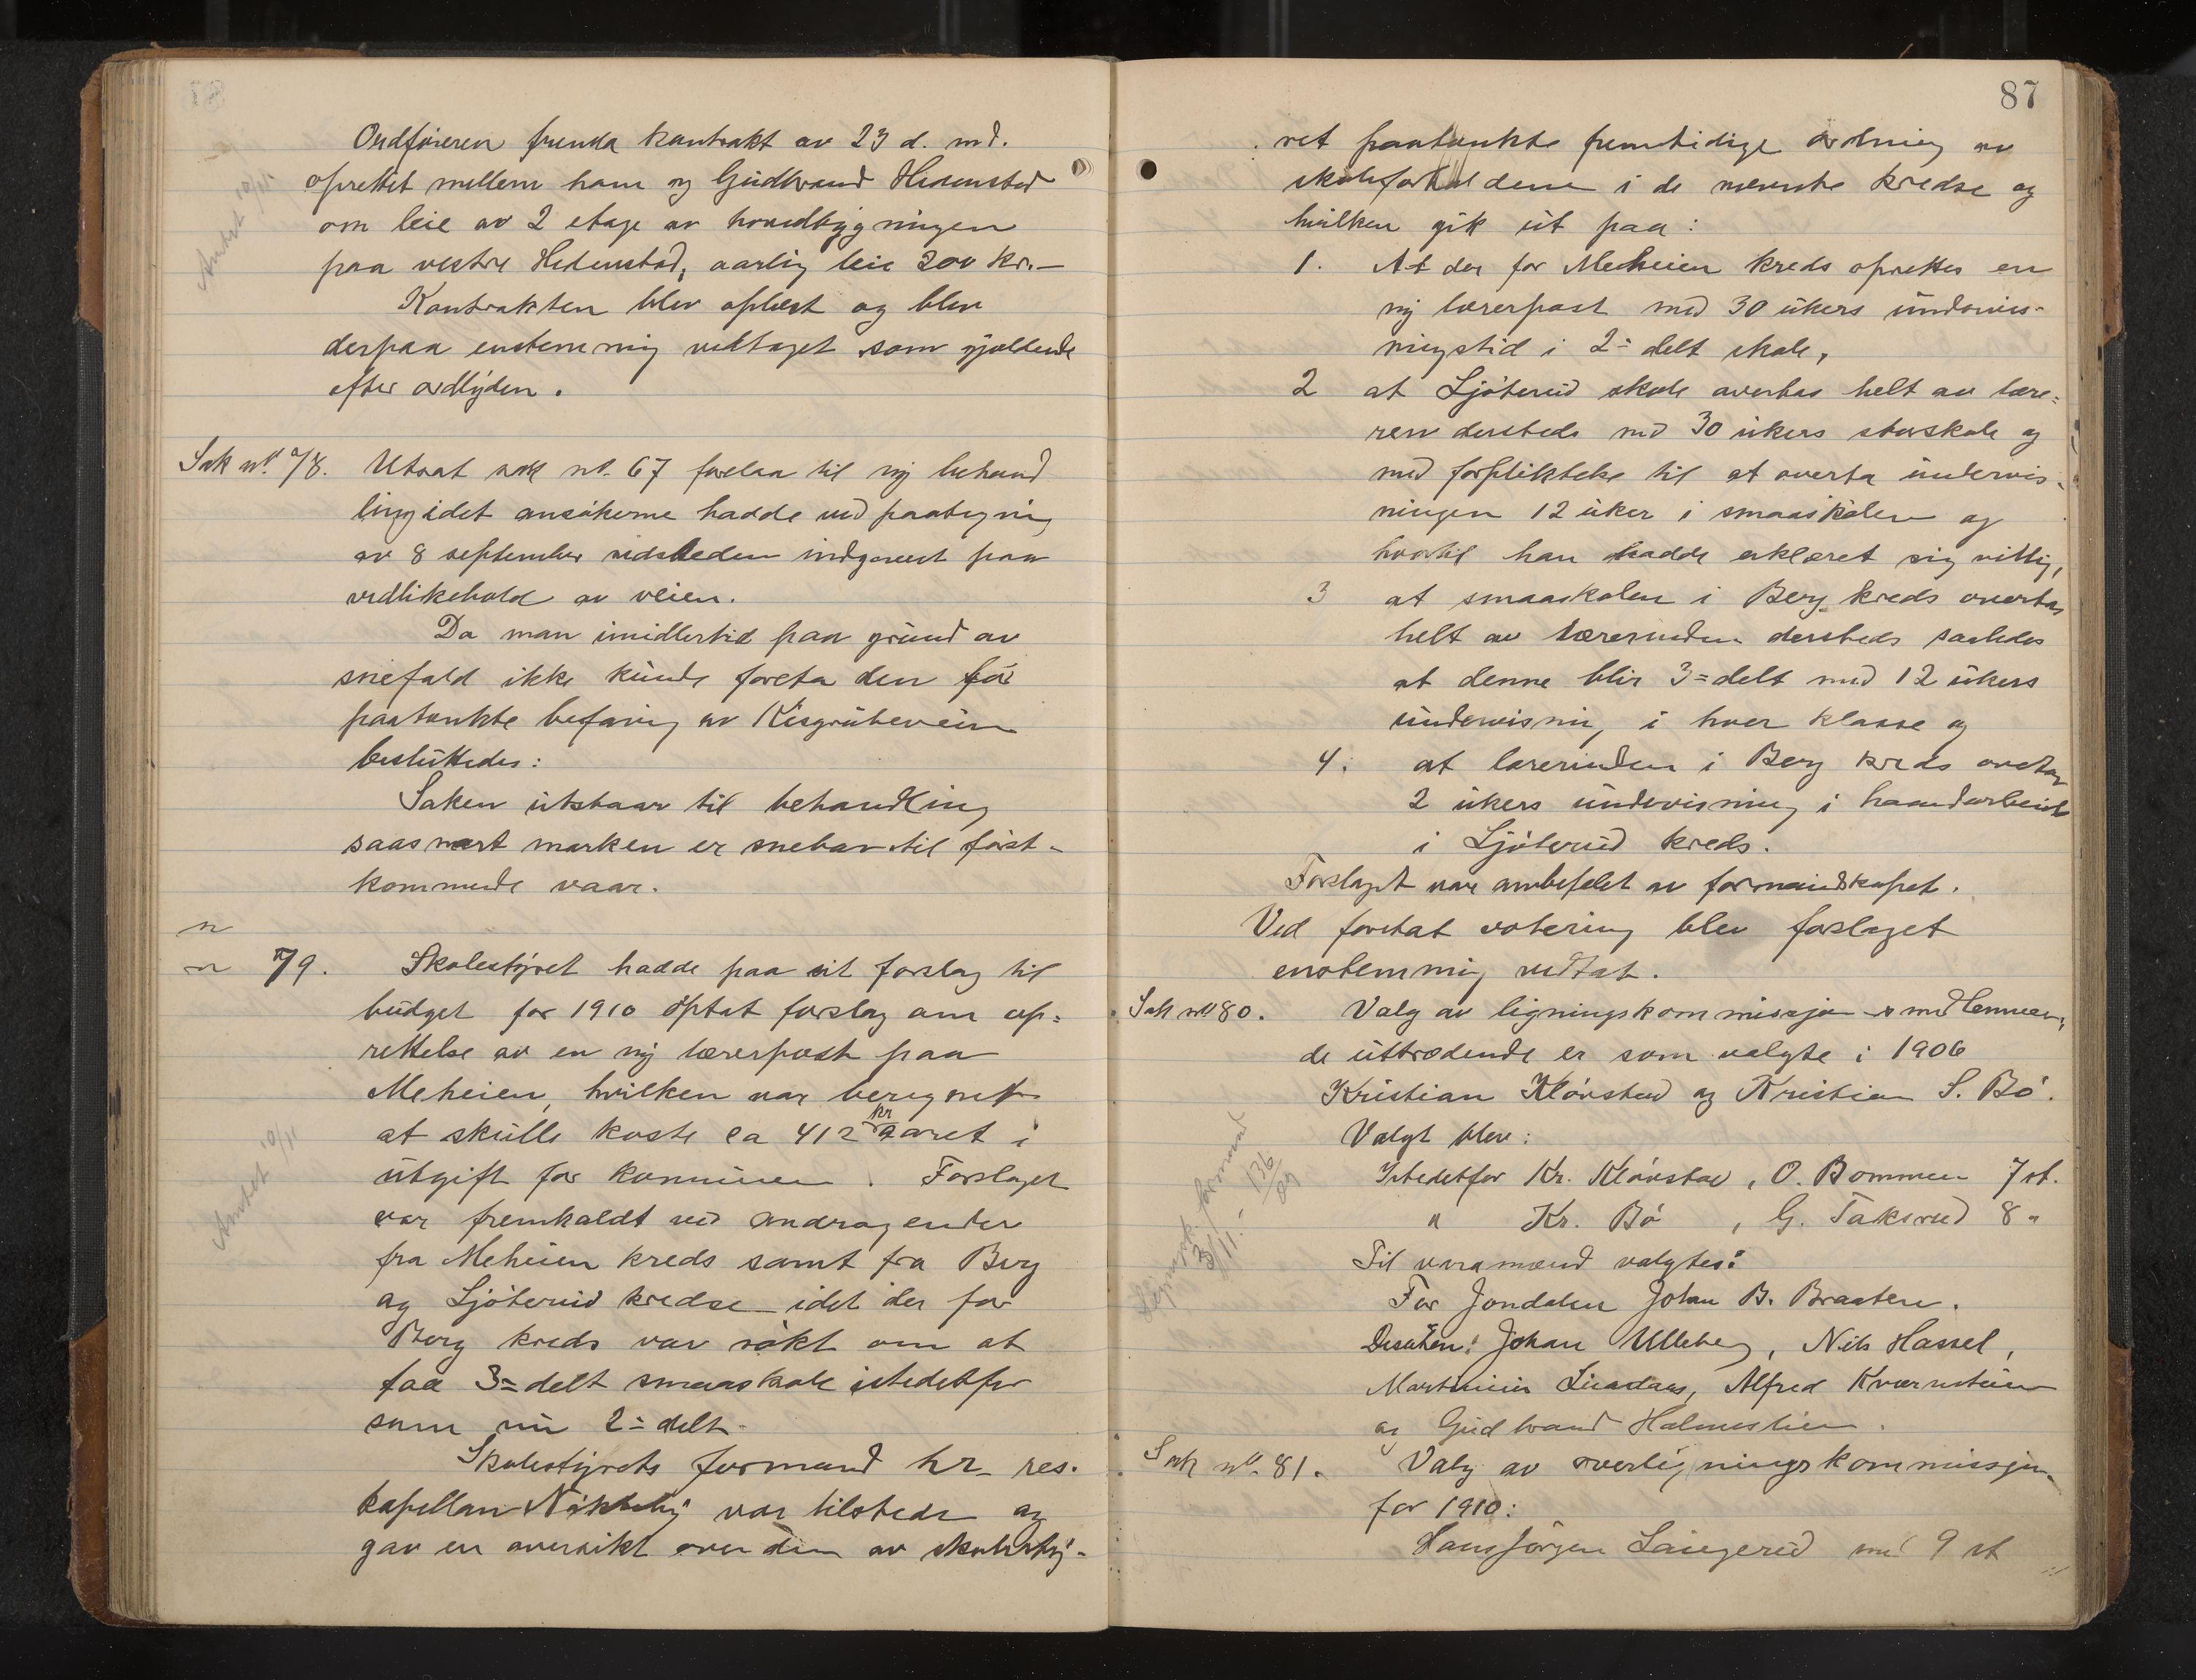 Ordføreren fremla kontrakt av 23 d. md.
oprettet mellem ham og Gudbrand Hedenstad
om leie av 2 etage av hovedbygningen
paa vestre Hedenstad, aarlig leie 200 kr.–
Kontrakten blev oplæst og blev
derpaa enstemmig vedtaget som gjældende
efter ordlyden.
Sak no. 78. Utsat sak no. 67 forelaa til ny behand
ling idet ansøkerne hadde ved paategning
av 8 september sidstleden indgaaet paa
vedlikehold av veien.
Da man imidlertid paa grund av
snefald ikke kunde foreta den før
paatænkte befaring av Kisgrubeveien
besluttedes:
Saken utstaar til behandling
saasnart marken er snebar til først-
kommende vaar.
79. Skolestyret hadde paa sit forslag til
budget for 1910 optat forslag om op=
rettelse av en ny lærerpost paa
Meheien, hvilken var beregnet
at skulle koste ca 412 kr aaret i
utgift for kommunen. Forslaget
var fremkaldt ved andragender
fra Meheien kreds samt fra Berg
og Ljøterud kredse idet der for
Berg kreds var søkt om at
faa 3=delt smaaskole istedetfor
som nu 2=delt.
Skolestyrets formand hr. res.
kapellan Nøkleby var tilstede og
gav en oversikt over den av skolesty-
Amtet 10/11
Amtet 10/11
87
ret paatænkte fremtidige ordning av
skoleforholdene i de nævnte kredse og
hvilken gik ut paa:
1. At der for Meheien kreds oprettes en
ny lærerpost med 30 ukers undervis-
ningstid i 2=delt skole,
2 at Ljøterud skole overtas helt av lære=
ren dersteds med 30 ukers storskole og
med forpliktelse til at overta undervis-
ningen 12 uker i smaaskolen og
hvortil han hadde erklæret sig villig,
3 at smaaskolen i Berg kreds overtas
helt av lærerinden dersteds saaledes
at denne blir 3=delt med 12 ukers
undervisning i hver klasse og
4. at lærerinden i Berg kreds overtar
2 ukers undervisning i haandarbeide
i Ljøterud kreds.
Forslaget var anbefalet av formandskapet.
Ved foretat votering blev forslaget
enstemmig vedtat.
Sak no. 80. Valg av ligningskommissjonsmedlemmer,
de uttrædende er som valgte i 1906
Kristian Kløvstad og Kristian S. Bø.
Valgt blev:
Istedetfor Kr. Kløvstad, O. Bommen 7 st.
" Kr. Bø, G. Taksrud 8 "
Til varamænd valgtes:
For Jondalen Johan B. Braaten.
Desuten: Johan Ulleberg, Nils Hassel,
Alfred Kværnsteien
og Gudbrand Holmestien.
Sak no. 81. Valg av overligningskommissjon
for 1910:
Hans Jørgen Laugerud med 9 st
3/11
136/09